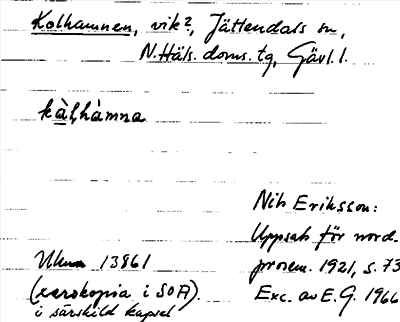 Kolhamnen, vik?, Jättendals sn,
N. Häls. doms. tg, Gävl. l.
kàl,hàmna
Nils Eriksson:
Uppsats för nord.
prosem. 1921, s. 73
Exc. av E. G. 1966
Ukma 13861
(xerokopia i SOA).
i särskild kapsel